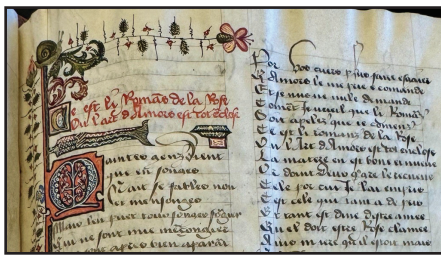 Ce est li Romans de la Rose
Ou l'art d'Amors est tote close
Maintes gens dient
que en songes
N'a se fables non
et mensonges
Mais l'en puet tous songes songer
Qui ne sont mie mensonger
apres bien aparant
Por vos cuers plus faire esgaier
Amors le me prie et comande
Et se nus ne nule demande
Coment je vueil que li Romans
Soit apelez que je comens
Ce est li romans de la Rose
Ou l'art d'Amors est tote close
La matere en est bone et
Or doint Dieu
Cele por cui je l'ai empris
C'est cele qui tant a de pris
Et tant est digne d'estre amee
Qu'el doit estre Rose clamee